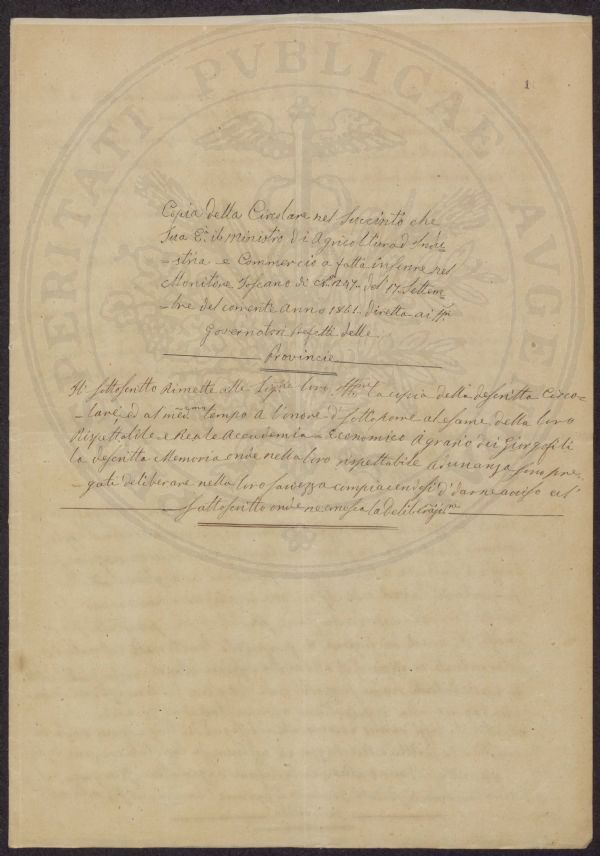 1
PVBLICAE VERITATI AVGE
Copia della Circolare nel Succinto che
Sua E. il Ministro di Agricoltura d'Indu-
-stria e Commercio a fatta inserire nel
Monitore Toscano di N. 247. del 17. Settem-
-bre del corrente anno 1861. diretta ai
Governatori Prefetti delle
Provincie
Il Sottoscritto Rimette alle loro la copia della descritta Circo-
-lare, ed al tempo a l'onore d' Sottoporre al esame della loro
Rispettabile e Reale Accademia Economico Agrario dei Giorgofili
la descritta Memoria onde nella loro rispettabile Adunanza sono pre-
-gati deliberare nella loro saviezza compiacendosi d' darne avviso al
Sottoscritto onde ne emessa la